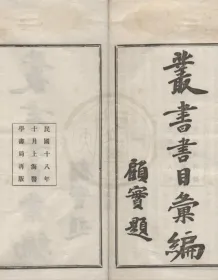 叢書書目彙編
顧實題
民國十八年
十月上海醫
學書局再版